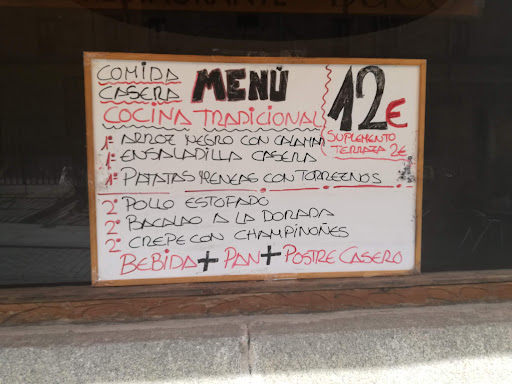 COMIDA
CASERA
MENÚ
12€
COCINA TRADICIONAL
SUPLEMENTO
TERRAZA 2€
1º ARROZ NEGRO CON CALAMAR
1º ENSALADILLA CASERA
1º PATATAS MENEAS CON TORREZNOS
2º POLLO ESTOFADO
2º BACALAO A LA DORADA
2º CREPE CON CHAMPIÑOÑES
BEBIDA + PAN + POSTRE CASERO